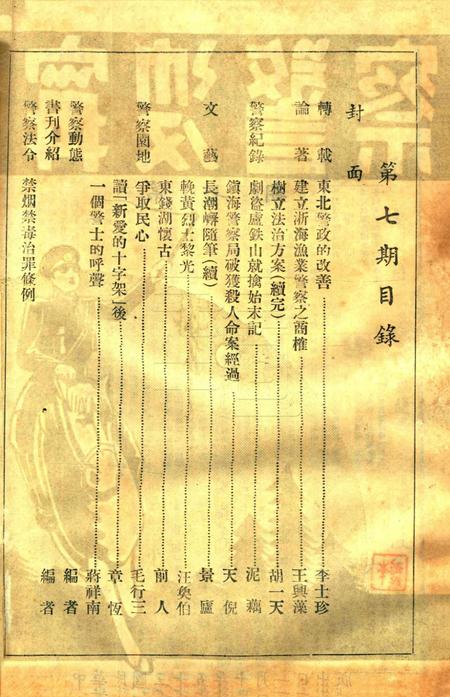 第七期目錄
封面
轉載 東北警政的改善 李士珍
論著 建立浙海漁業警察之商榷 王興藻
樹立法治方案(續完) 胡一天
警察紀錄 劇盜盧鉄山就擒始末記 泥藕
鎮海警察局破獲殺人命案經過 天倪
文藝 長潮嶂隨筆(續) 景廬
輓黄烈士黎光 汪奐伯
東錢湖懷古 前人
警察園地 爭取民心 毛行三
讀「新愛的十字架」後 章恆
一個警士的呼聲 蔣祥南
警察動態 編者
書刊介紹 編者
警察法令 禁烟禁毒治罪條例